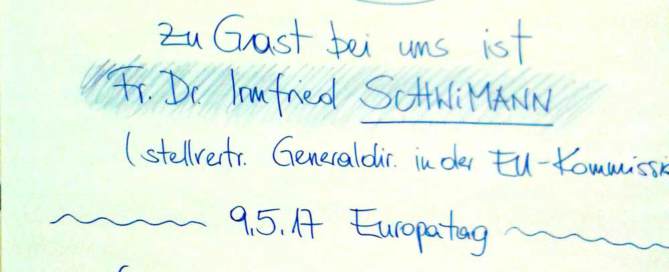 zu Gast bei uns ist
Fr. Dr. Irmfried SCHWiMANN
(stellvertr. Generaldir. in der EU-Kommissi
9.5.17 Europatag